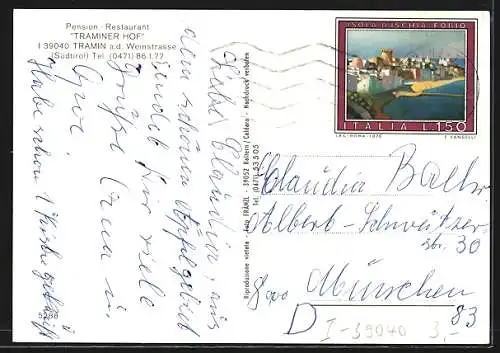 Pension - Restaurant
"TRAMINER HOF"
I 39040 TRAMIN a.d. Weinstrasse
(Südtirol) Tel. (0471) 86 1 77
Liebe Claudia, aus
dem schönen Apfelgebiet
sendet Dir viele
Grüße Oma u
Habe schon 1 Kiste gekauft
Riproduzione vietata - Foto FRÄNZL - 39052 Kaltern/Caldaro - Nachdruck verboten
Tel. (0471) 53505
ISOLA D'ISCHIA: FORIO
ITALIA L.150
I.P.S.-ROMA-1976
T. VANGELLI
Claudia
Albert-Schweitzer
str. 30
8000 München
83
D I-39040 3,-